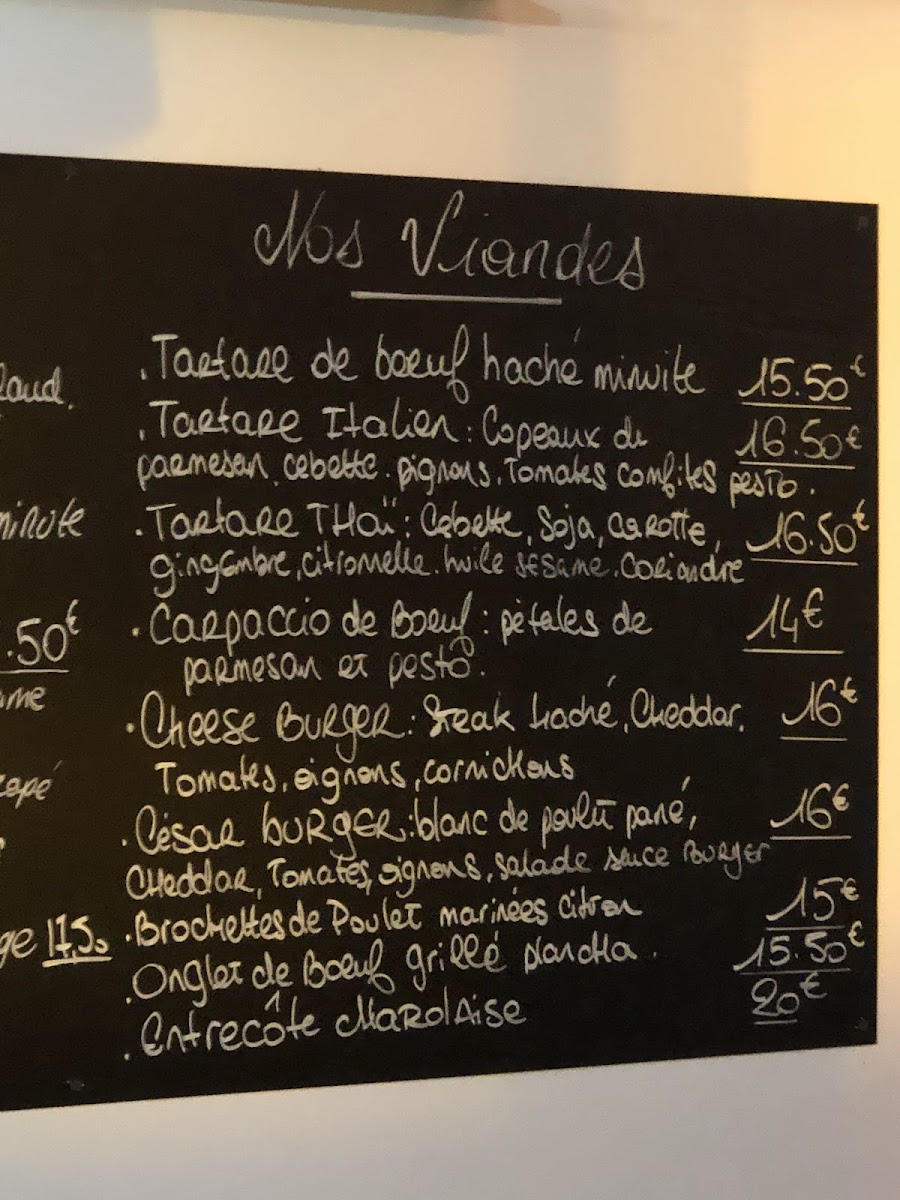 Nos Viandes
. Tartare de boeuf haché minute 15.50€
. Tartare Italien : Copeaux de 16.50€
parmesan. cebette. pignons. Tomates confites pesto.
. Tartare THaï : Cebette, Soja, carotte, 16.50€
gingembre, citronnelle. huile sesame. Coriandre
. Carpaccio de Boeuf : pétales de 14€
parmesan et pesto.
. Cheese BURGER : Steak haché, Cheddar, 16€
Tomates, oignons, cornichons
. César burger : blanc de poulet pané, 16€
Cheddar, Tomates, oignons, salade sauce Burger
. Brochettes de Poulet marinées citron 15€
. Onglet de Boeuf grillé plancha. 15.50€
. Entrecôte Marolaise 20€
aud.
minute
.50€
me
apé
ge 17.50